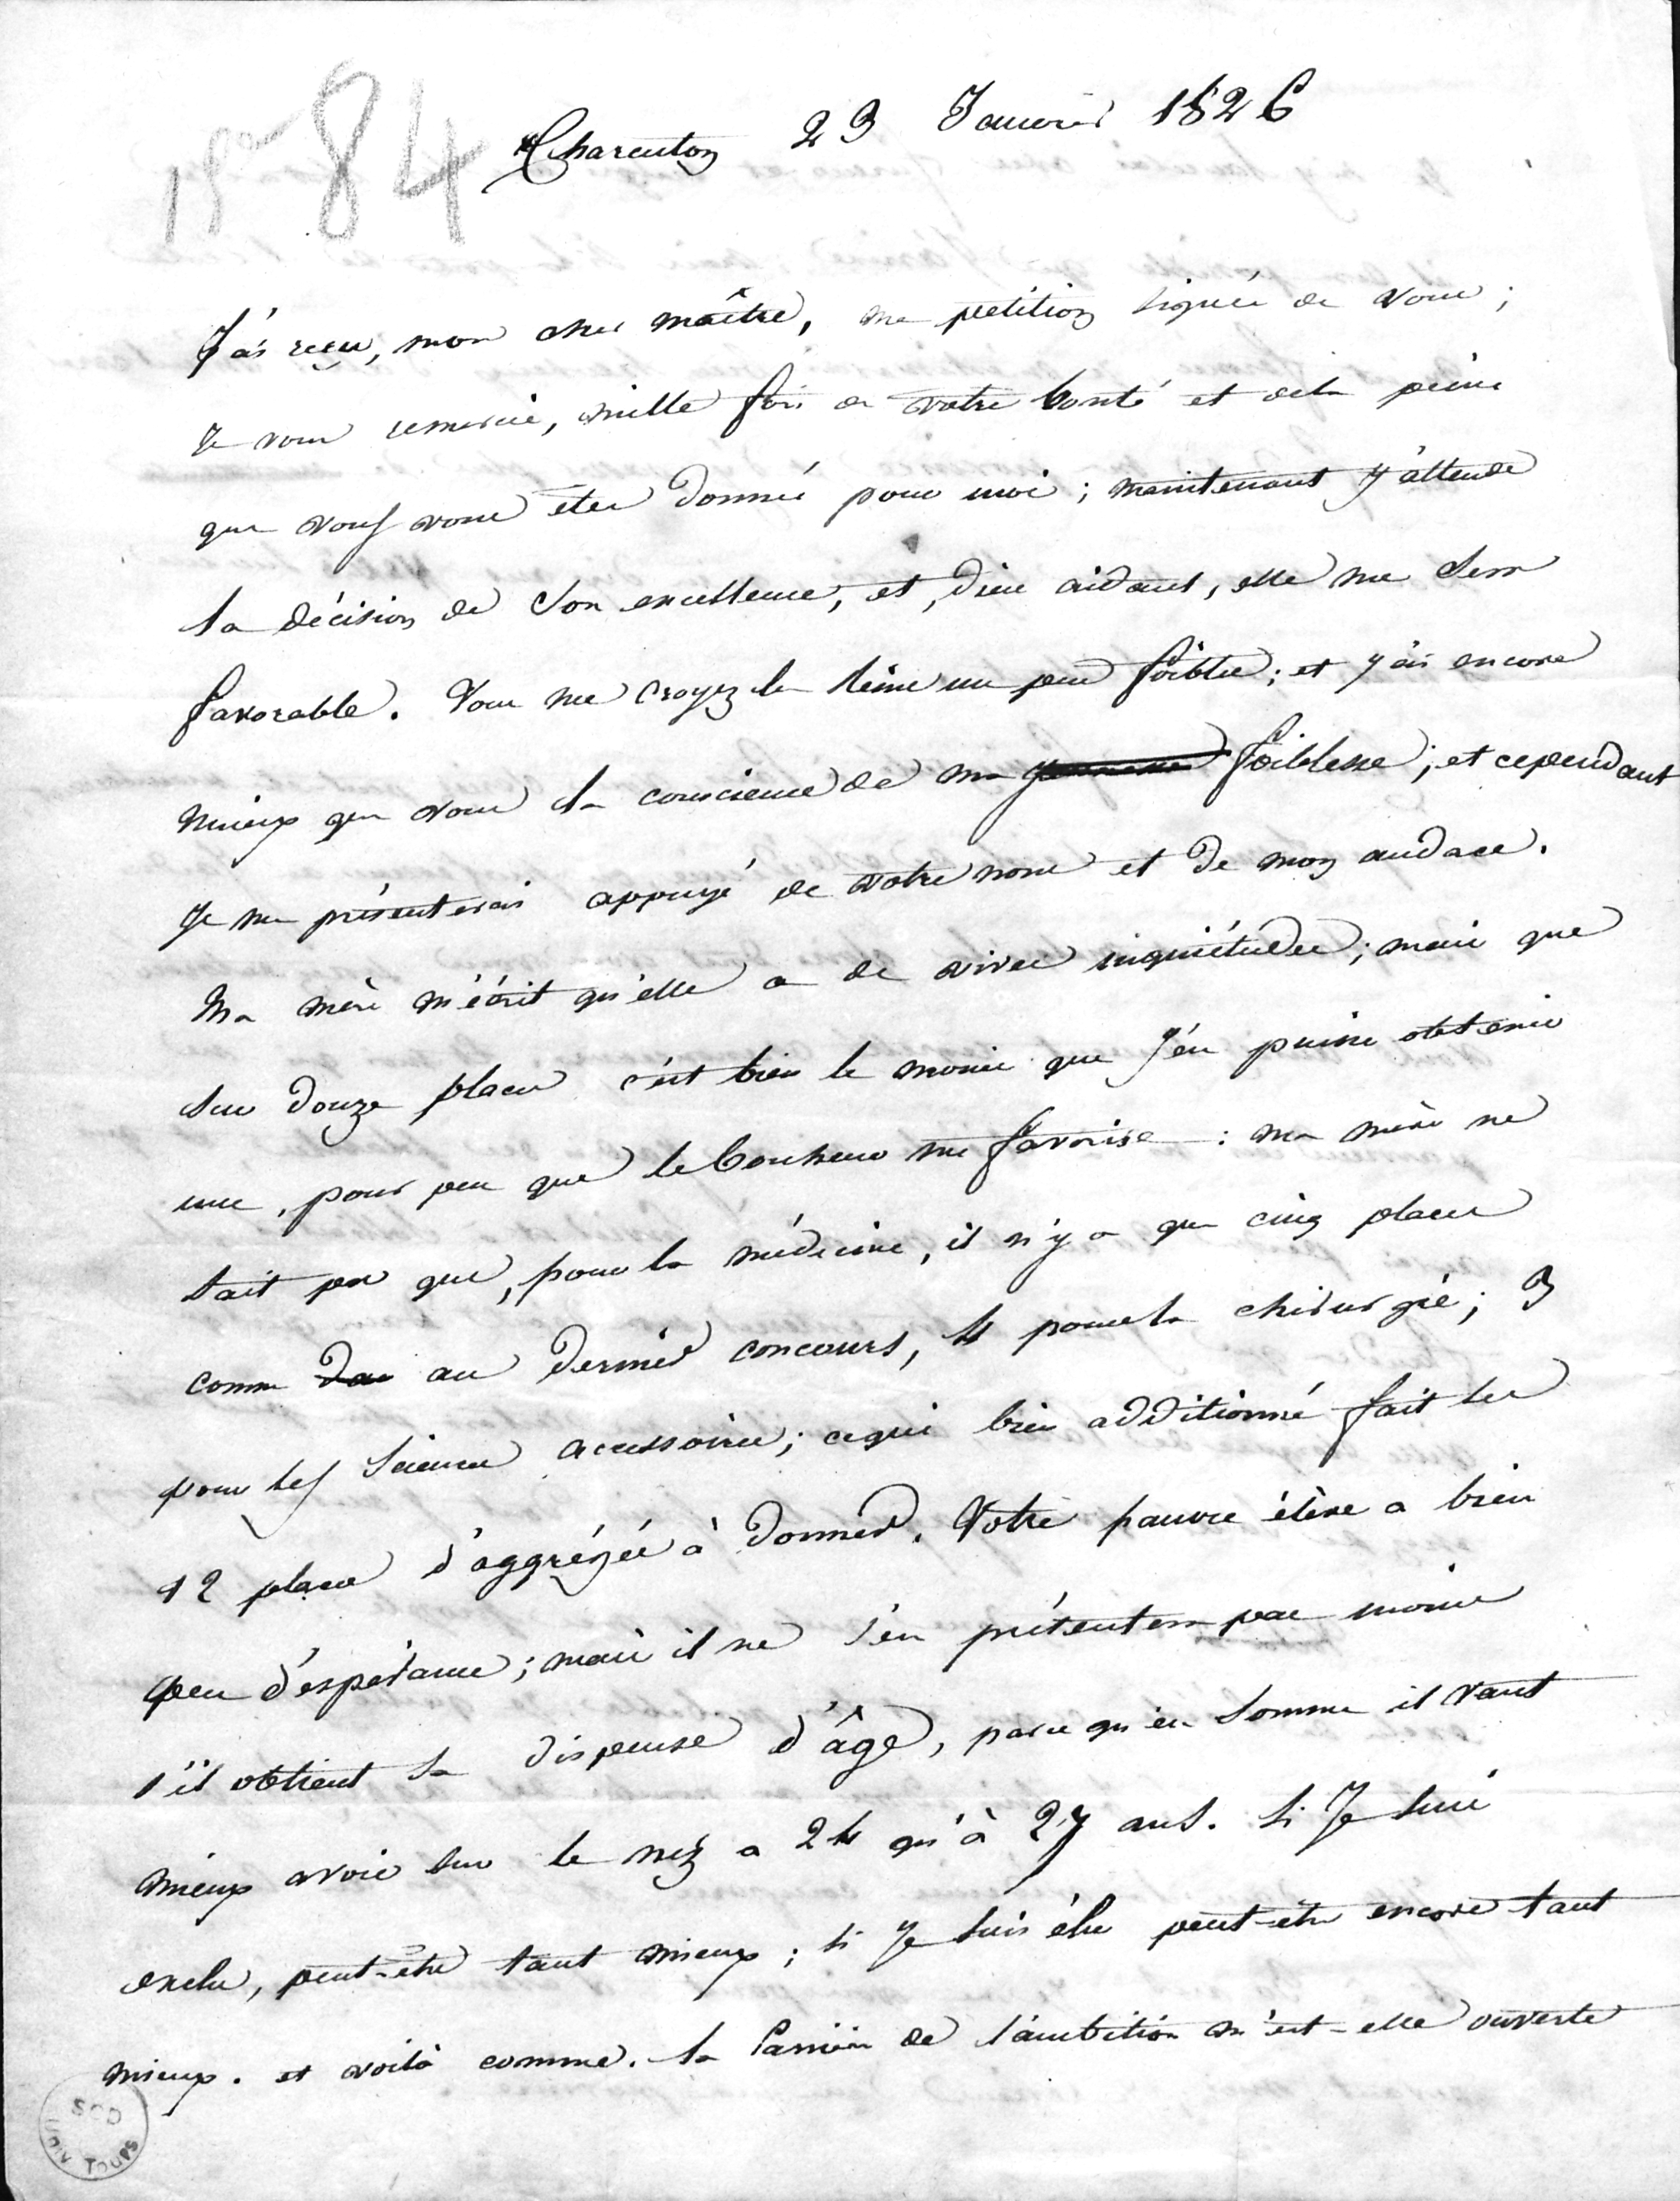 18e 84
Charenton 23 Janvier 1826
J'ai reçu, mon cher maître, ma petition signée de vous ;
Je vous remercie, mille fois de votre bonté et de la peine
que vous vous êtes donné pour moi ; maintenant j'attends
la décision de son excellence, et, dieu aidant, elle me sera
favorable. Vous me croyez les reins un peu foibles ; et j'ai encore
mieux que vous la conscience de ma foiblesse ; et cependant
Je me présenterai appuyé de votre nom et de mon audace.
Ma mère m'écrit qu'elle a de vives inquiétudes ; mais que
sur douze places c'est bien le moins que j'en puisse obtenir
une, pour peu que le bonheur me favorise : ma mère ne
sait pas que, pour la médecine, il n'y a que cinq places
comme au dernier concours, 4 pour la chirurgie ; 3
pour les sciences accessoires ; ce qui bien additionné fait les
12 places d'aggrégés à donner. Votre pauvre élève a bien
peu d'espérance ; mais il ne s'en présentera pas moins
s'il obtient sa dispense d'âge, parce qu'en somme il vaut
mieux avoir sur le nez a 24 qu'à 27 ans. Si Je suis
exclu, peut-être tant mieux ; si Je suis élu peut-être encore tant
mieux. et voilà comme. la carrière de l'ambition m'est-elle ouverte
SCD
UNIV TOURS